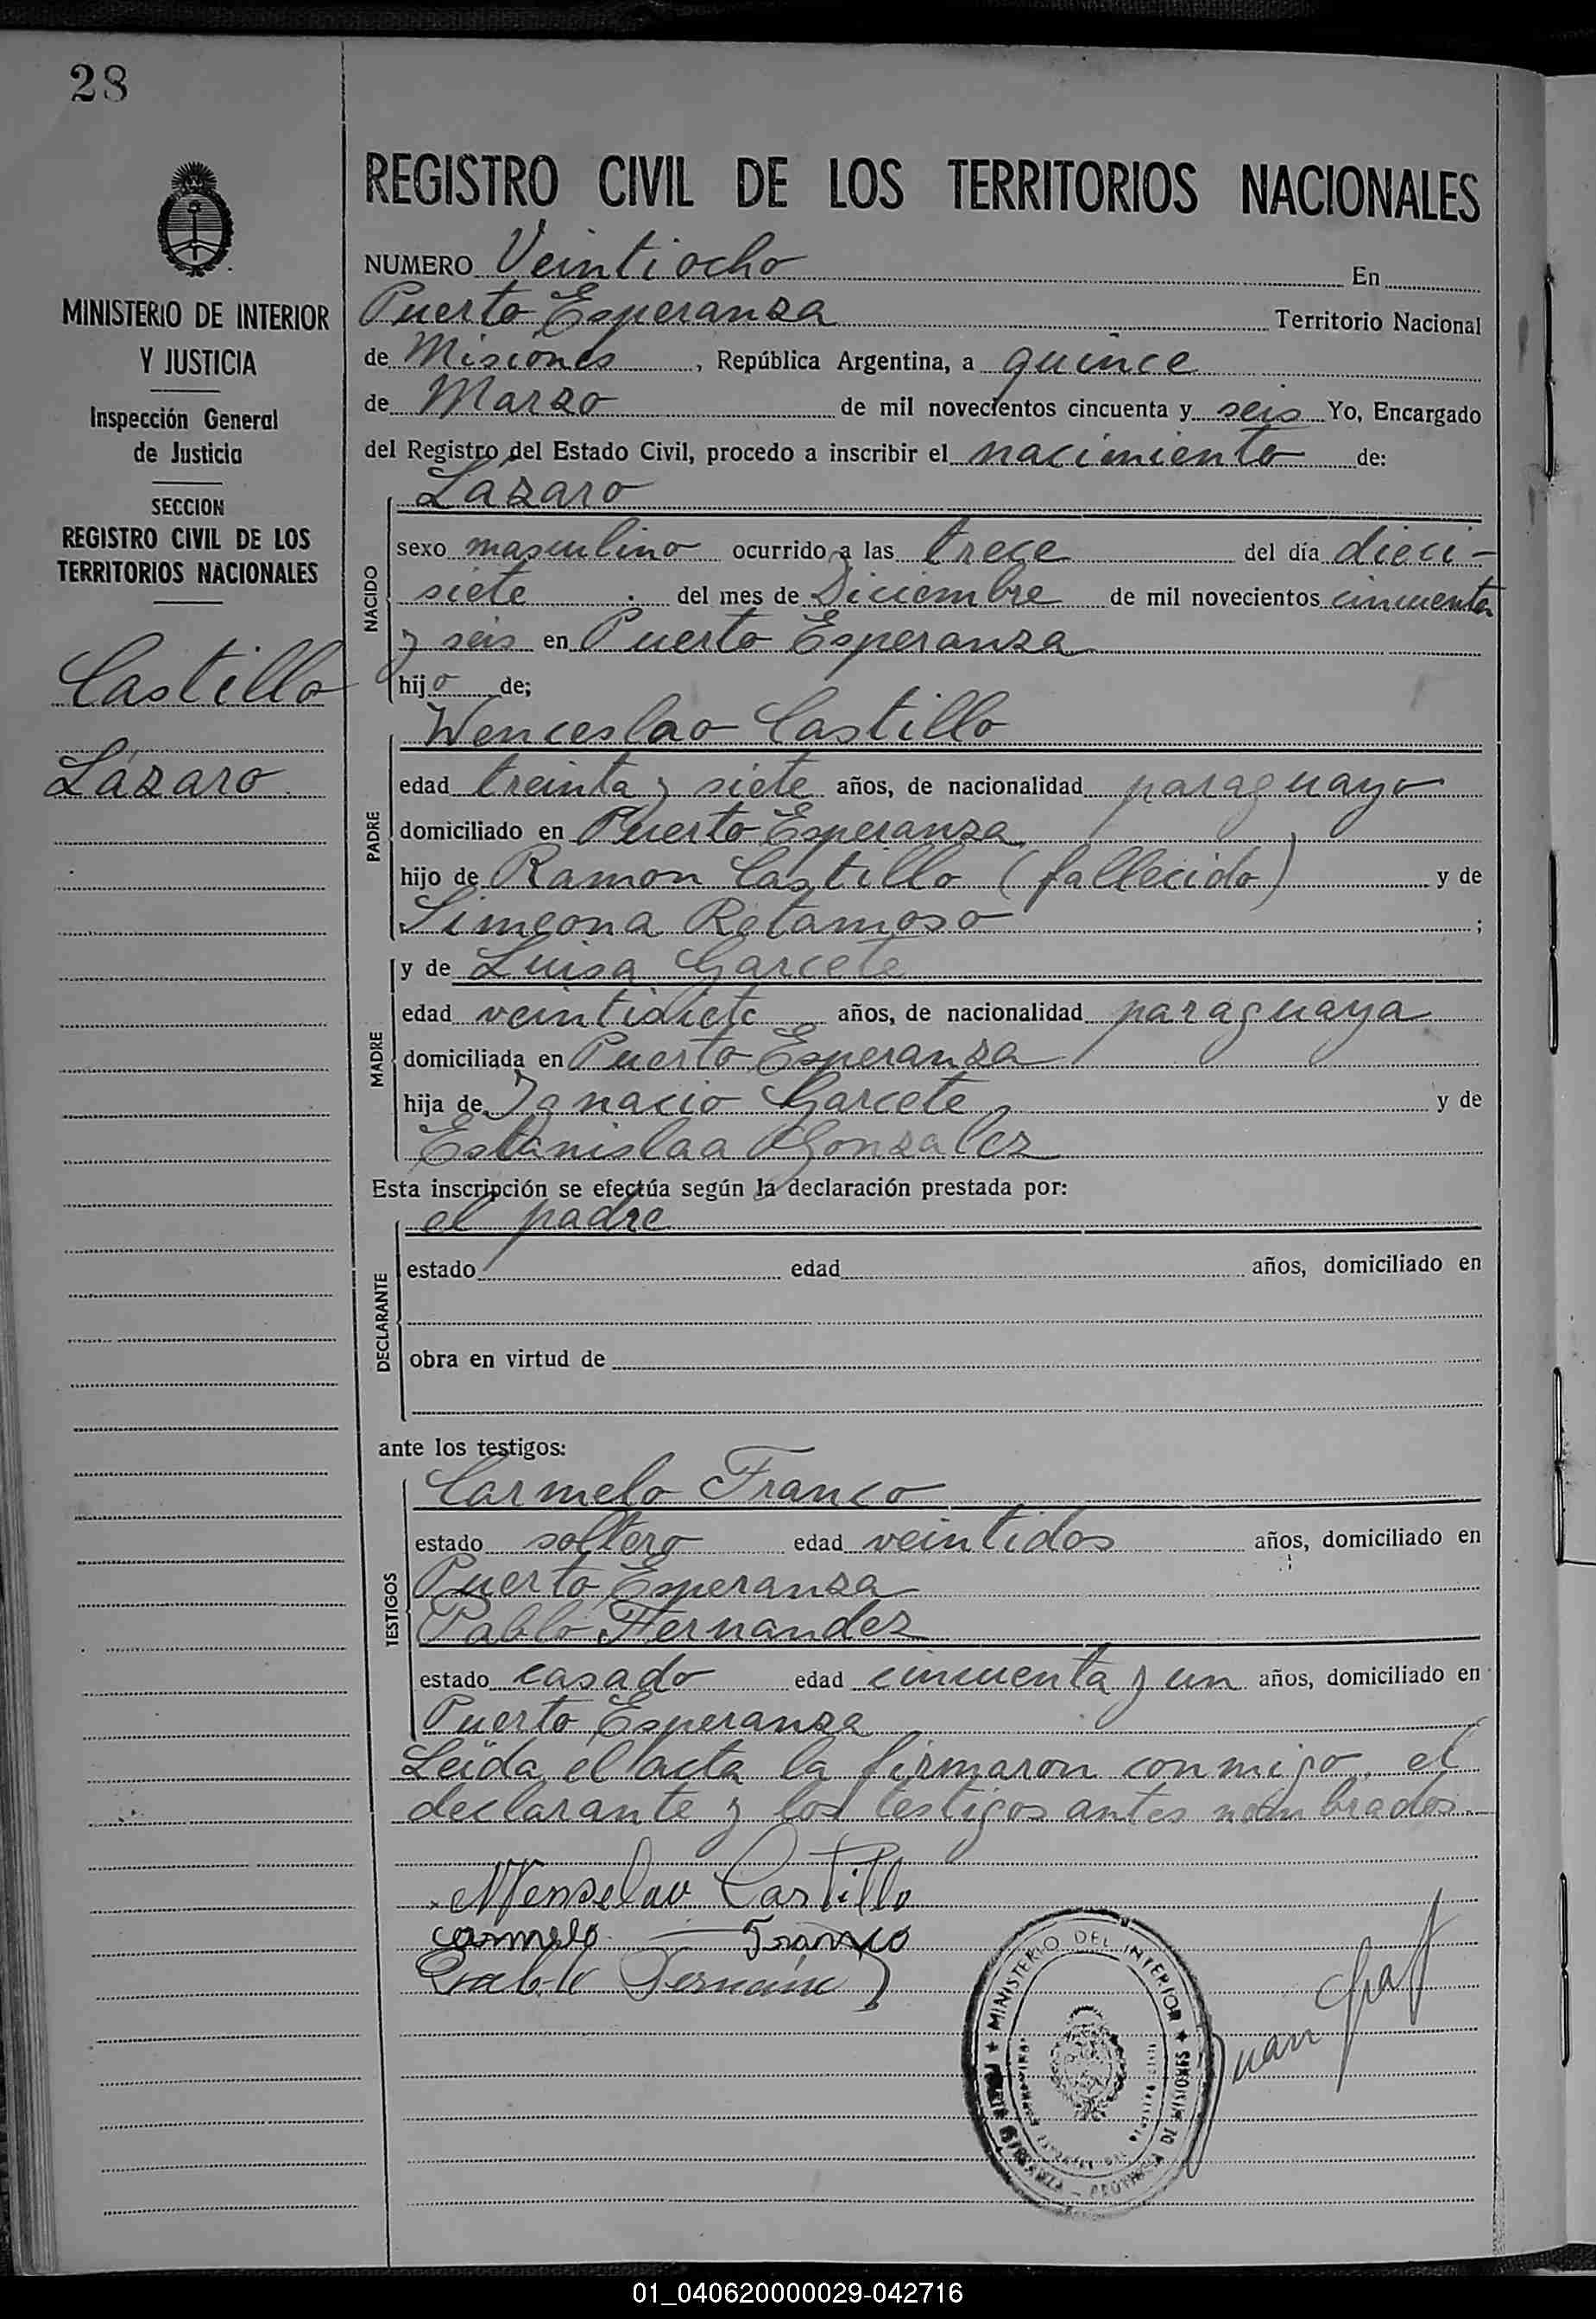 28
MINISTERIO DE INTERIOR
Y JUSTICIA
Inspección General
de Justicia
SECCION
REGISTRO CIVIL DE LOS
TERRITORIOS NACIONALES
Castillo
Lázaro
REGISTRO CIVIL DE LOS TERRITORIOS NACIONALES
NUMERO Veintiocho En
Puerto Esperanza Territorio Nacional
de Misiones, República Argentina, a quince
de Marzo de mil novecientos cincuenta y seis Yo, Encargado
del Registro del Estado Civil, procedo a inscribir el nacimiento de:
NACIDO
Lázaro
sexo masculino ocurrido a las trece del día dieci-
siete del mes de Diciembre de mil novecientos cincuenta
y seis en Puerto Esperanza
hijo de;
PADRE
Wenceslao Castillo
edad treinta y siete años, de nacionalidad paraguayo
domiciliado en Puerto Esperanza
hijo de Ramon Castillo (fallecido) y de
Simeona Retamoso ;
MADRE
y de Luisa Garcete
edad veintisiete años, de nacionalidad paraguaya
domiciliada en Puerto Esperanza
hija de Ignacio Garcete y de
Estanislaa Gonzalez
Esta inscripción se efectúa según la declaración prestada por:
DECLARANTE
el padre
estado edad años, domiciliado en
obra en virtud de
ante los testigos:
TESTIGOS
Carmelo Franco
estado soltero edad veintidos años, domiciliado en
Puerto Esperanza
Pablo Fernandez
estado casado edad cincuenta y un años, domiciliado en
Puerto Esperanza
Leida el acta la firmaron conmigo, el
declarante y los testigos antes nombrados.
Wenselao Castillo
carmelo Franco
Pablo
MINISTERIO DEL INTERIOR
PROVINCIA DE MISIONES
Juan
01_040620000029-042716